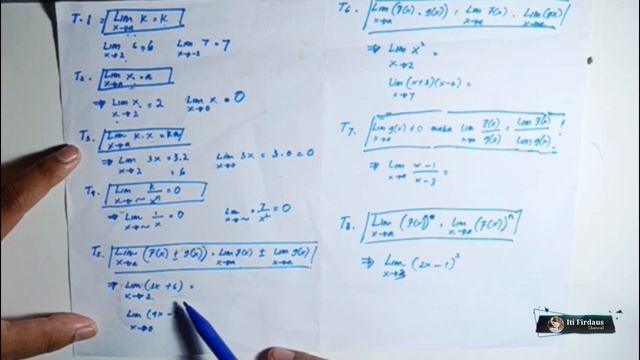 T.1 = Lim x→a k = k
Lim x→2 6 = 6 Lim x→-3 7 = 7
T2. Lim x→a x = a
⇒ Lim x→2 x = 2 Lim x→0 x = 0
T3. Lim x→a k.x = ka
⇒ Lim x→2 3x = 3.2 Lim x→0 3x = 3.0 = 0
= 6
T4. Lim x→~ k/xⁿ = 0
⇒ Lim x→~ 1/x = 0 Lim x→~ 7/x² = 0
T5. Lim x→a (f(x) ± g(x)) = Lim x→a f(x) ± Lim x→a g(x)
⇒ Lim x→2 (2x + 6) =
Lim x→0 (4x -
T6. Lim x→a (f(x) . g(x)) = Lim x→a f(x) . Lim x→a g(x)
⇒ Lim x→2 x² =
Lim x→7 (x+3)(x-2) =
T7. Lim x→a g(x) ≠ 0 maka Lim x→a f(x)/g(x) = Lim f(x)/Lim g(x)
⇒ Lim x-1/x-3 =
T8. Lim x→a (f(x))ⁿ = Lim x→a (f(x))ⁿ
⇒ Lim x→3 (2x - 1)³
Iti Firdaus
Channel